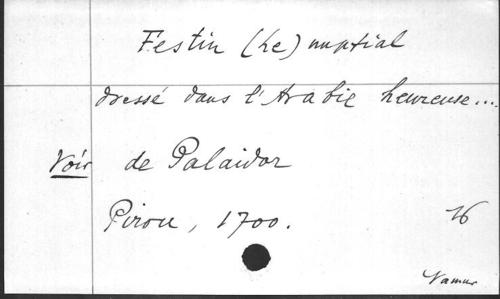 Festin (Le) nuptial
dressé dans l'Arabie heureuse...
Voir de Palaidor
Pirou, 1700.
16
Namur